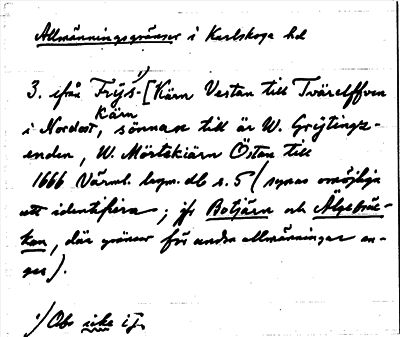 Allmänningsgränser i Karlskoga hd
3. ifrån Frÿs-¹⁾[Kärn Vestan till Tvärelffven
kärn
i Nordost, sönnan till är W. Grijtings-
enden, W. Mörtekiärn Östan till
1666 Värml. lagm. db s. 5 (synes omöjliga
att identifiera; jfr Botjärn och Älgebräc-
kan, där gränser för andra allmänningar an-
ges).
¹⁾ Obs icke ij